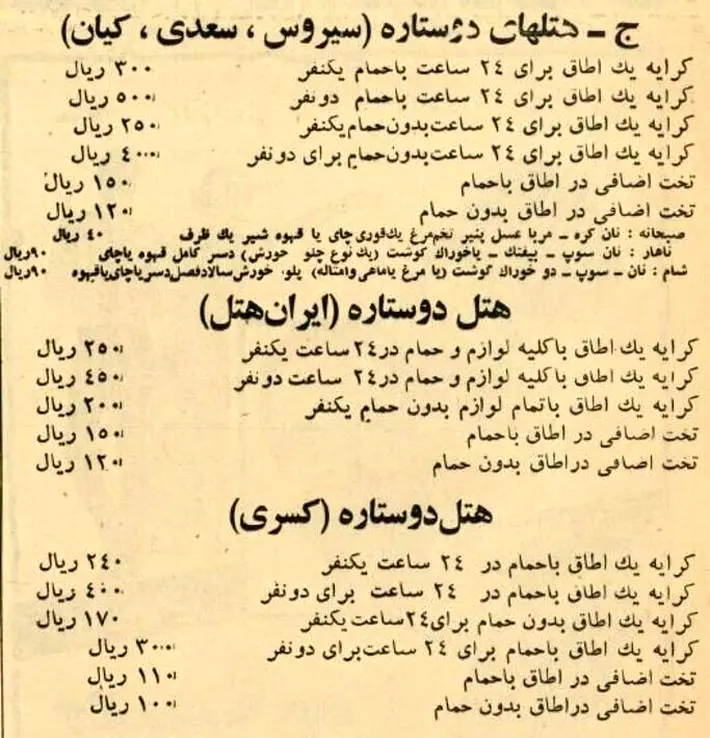 ج ـ هتلهای دوستاره (سیروس ، سعدی ، کیان)
کرایه یك اطاق برای ٢٤ ساعت باحمام یکنفر ٣٠٠ ریال
کرایه یك اطاق برای ٢٤ ساعت باحمام دونفر ٥٠٠ ریال
کرایه یك اطاق برای ٢٤ ساعت‌بدون‌حمام‌یکنفر ٢٥٠ ریال
کرایه یك اطاق برای ٢٤ ساعت‌بدون‌حمام برای دونفر ٤٠٠ ریال
تخت اضافی در اطاق باحمام ١٥٠ ریال
تخت اضافی در اطاق بدون حمام ١٢٠ ریال
صبحانه : نان کره ـ مربا عسل پنیر تخم‌مرغ یك‌قوری‌چای یا قهوه شیر یك ظرف ٤٠ ریال
ناهار : نان سوپ ـ بیفتك ـ یاخوراك گوشت (یك نوع چلو خورش) دسر کامل قهوه یاچای ٩٠ریال
شام : نان ـ سوپ ـ دو خوراك گوشت (یا مرغ یاماهی وامثاله) پلو، خورش‌سالادفصل‌دسریاچای‌یاقهوه ٩٠ریال
هتل دوستاره (ایران‌هتل)
کرایه یك اطاق باکلیه لوازم و حمام در٢٤ساعت یکنفر ٢٥٠ ریال
کرایه یك اطاق باکلیه لوازم و حمام در٢٤ ساعت دونفر ٤٥٠ ریال
کرایه یك اطاق باتمام لوازم بدون حمام یکنفر ٢٠٠ ریال
تخت اضافی در اطاق باحمام ١٥٠ ریال
تخت اضافی دراطاق بدون حمام ١٢٠ ریال
هتل‌دوستاره (کسری)
کرایه یك اطاق باحمام در ٢٤ ساعت یکنفر ٢٤٠ ریال
کرایه یك اطاق باحمام در ٢٤ ساعت برای دونفر ٤٠٠ ریال
کرایه یك اطاق بدون حمام برای٢٤ساعت‌یکنفر ١٧٠ ریال
کرایه یك اطاق باحمام برای ٢٤ ساعت‌برای دونفر ٣٠٠ ریال
تخت اضافی در اطاق باحمام ١١٠ ریال
تخت اضافی دراطاق بدون حمام ١٠٠ ریال